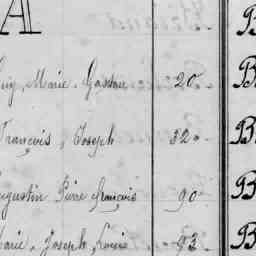 A B
Guy, Marie, Gaston 20 B
François, Joseph 320 B
Augustin Pierre François 90 B
Marie, Joseph, Louis 93 B